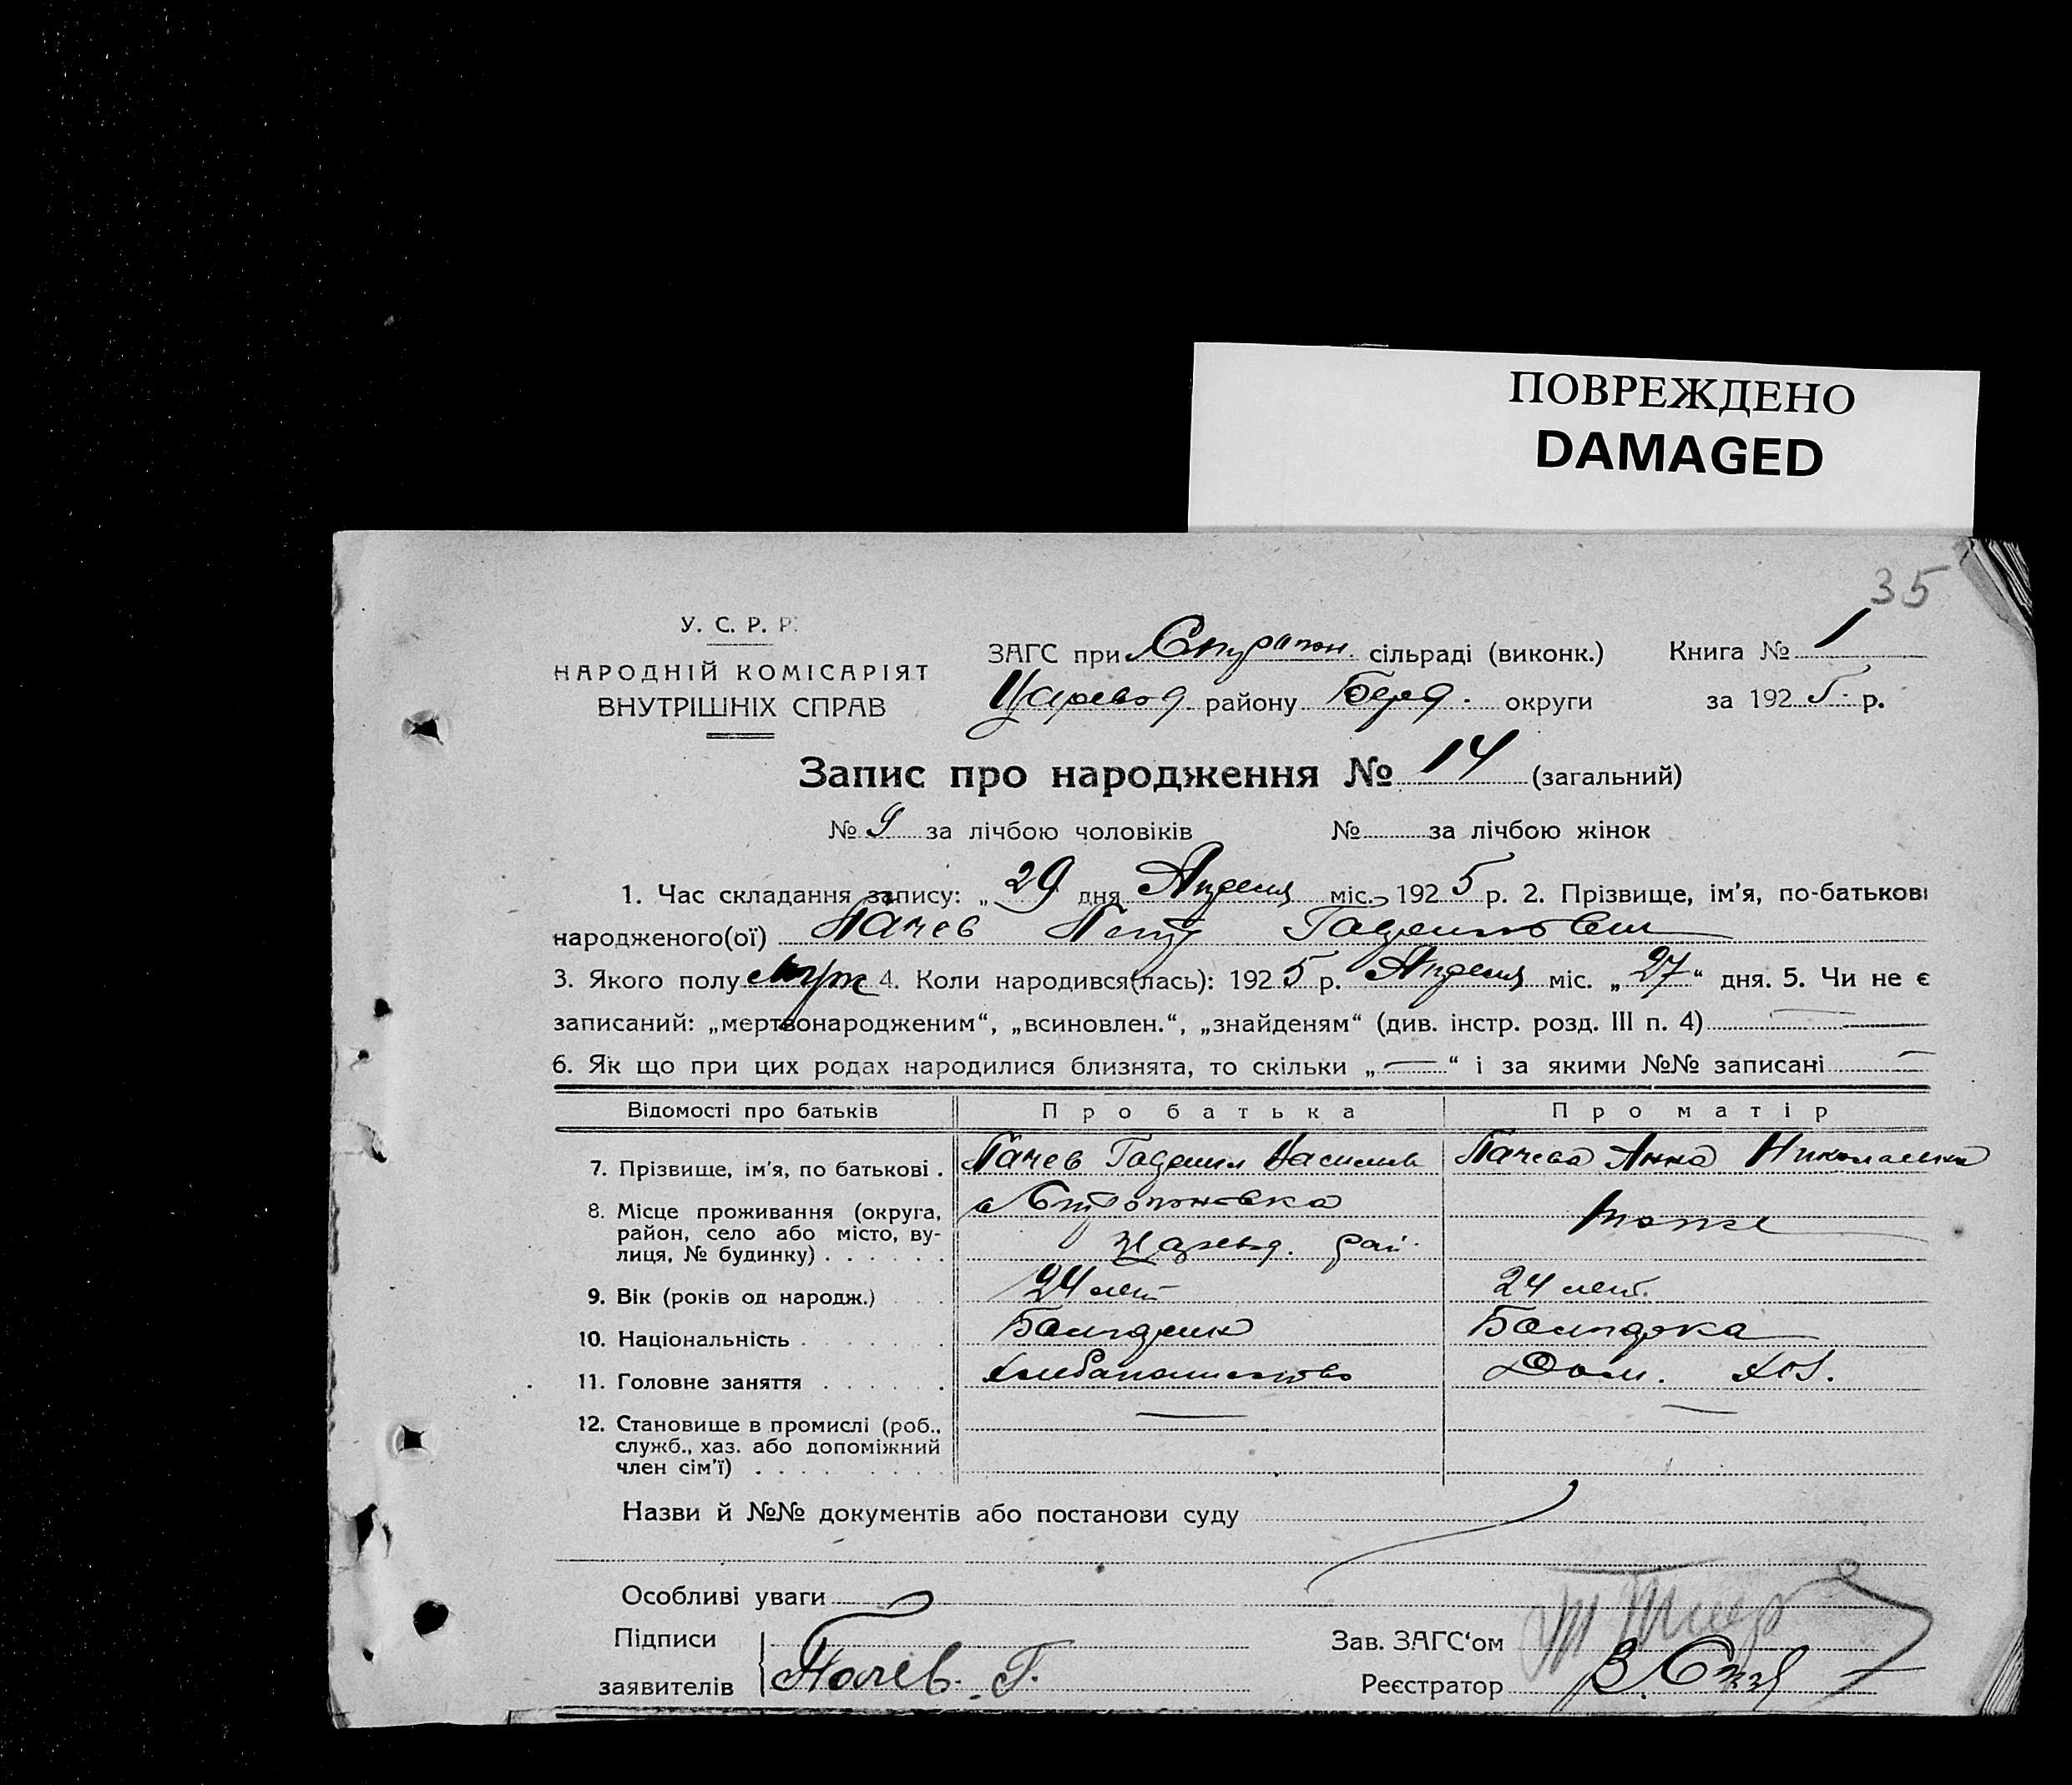 ПОВРЕЖДЕНО
DAMAGED
35
У. С. Р. Р.
НАРОДНІЙ КОМІСАРІЯТ
ВНУТРІШНІХ СПРАВ
ЗАГС при сільраді (виконк.) Книга № 1
Царевод. району Берд. округи за 1925 р.
Запис про народження № 14 (загальний)
№ 9 за лічбою чоловіків № за лічбою жінок
1. Час складання запису: „29 дня Апреля міс. 1925 р. 2. Прізвище, ім'я, по-батькові
народженого(ої) Пачев Петр Гаврилович
3. Якого полу муж 4. Коли народився(лась): 1925 р. Апреля міс. „27“ дня. 5. Чи не є
записаний: „мертвонародженим“, „всиновлен.“, „знайденям“ (див. інстр. розд. III п. 4)
6. Як що при цих родах народилися близнята, то скільки „—“ і за якими №№ записані —
Відомості про батьків Про батька Про матір
7. Прізвище, ім'я, по батькові . Пачев Гаврил Василев Пачева Анна Николаевна
8. Місце проживання (округа, район, село або місто, вулиця, № будинку) . . . . . . Царевод. рай. тоже
9. Вік (років од народж.) 24 лет 24 лет.
10. Національність . . . . . . Болгарин Болгарка
11. Головне заняття . . . . . . Хлебопашество Дом. хоз.
12. Становище в промислі (роб., служб., хаз. або допоміжний член сім'ї) . . . . — —
Назви й №№ документів або постанови суду
Особливі уваги
Підписи
заявителів Пачев. Г.
Зав. ЗАГС'ом
Реєстратор